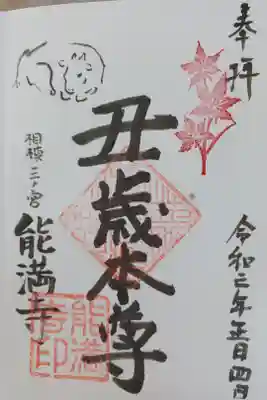 奉拝
令和二年正月四日
丑歳本尊
相模三ノ宮
能満寺
能満
寺印